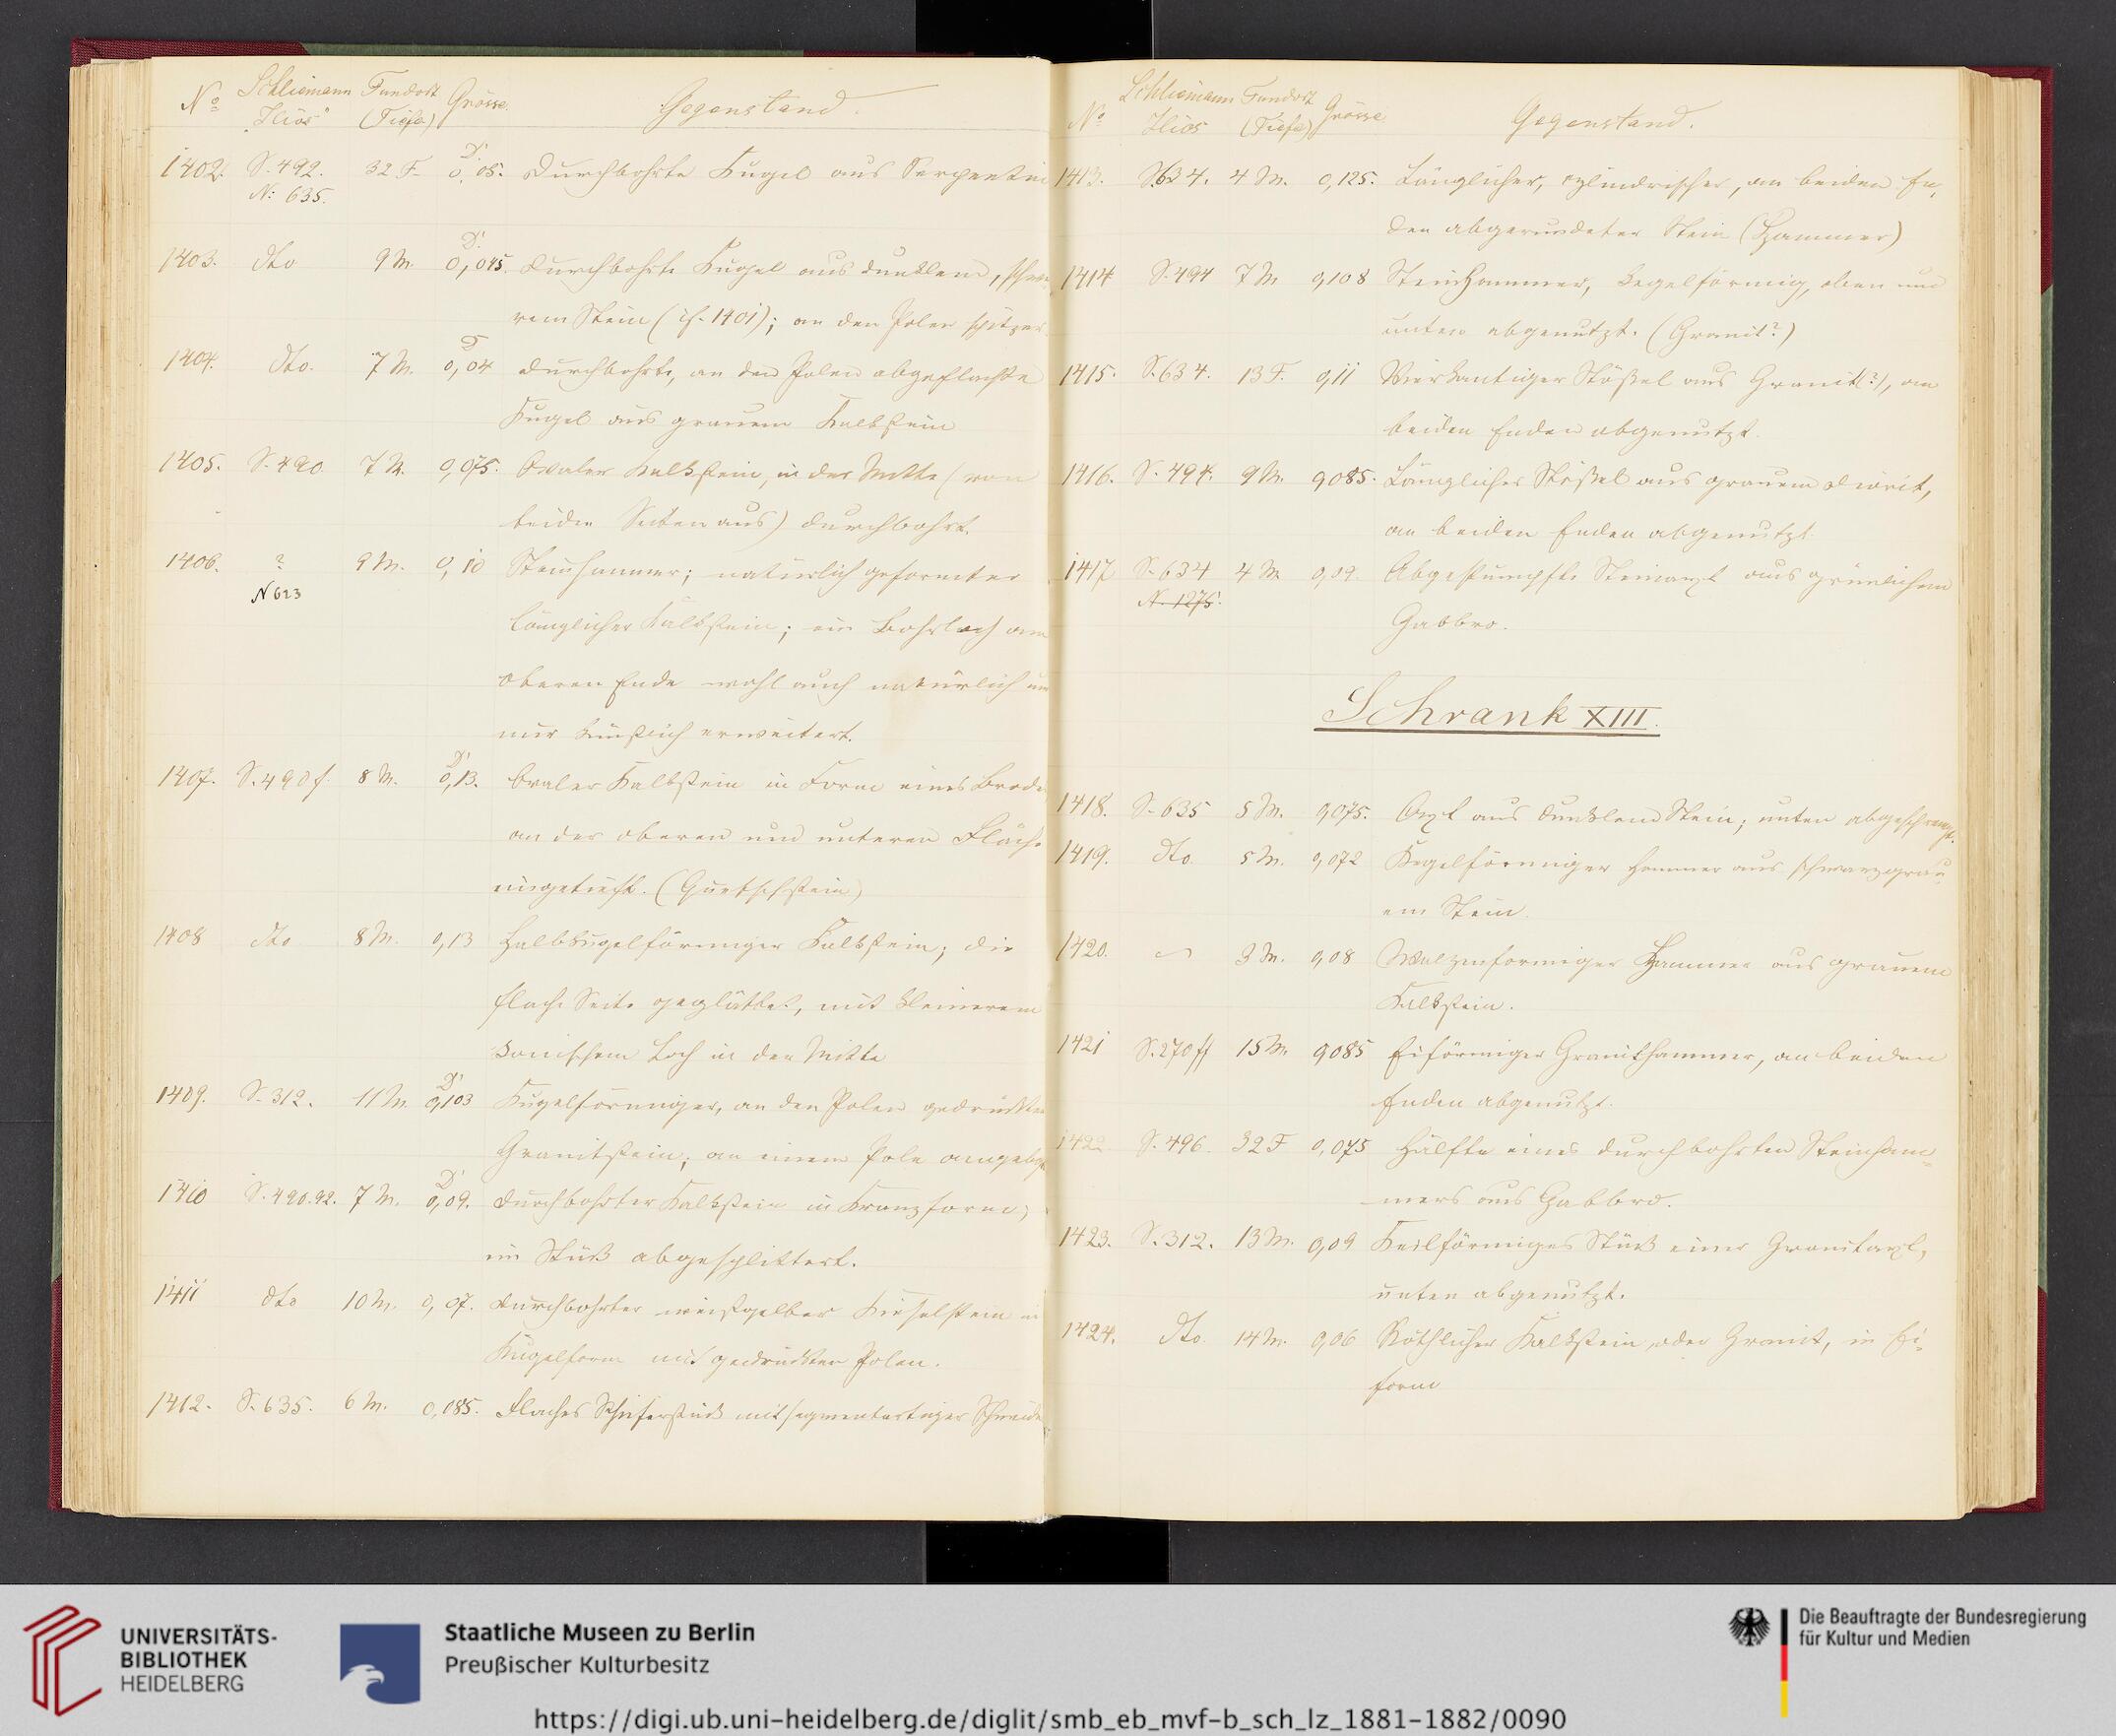 No Schliemann Fundort Grösse Gegenstand.
„Ilios" (Tiefe)
1402. S. 492. 32 F. D' 0,05. Durchbohrte Kugel aus Serpentin
N: 635.
1403. dto 9 M. D' 0,045. Durchbohrte Kugel aus dunklem,
rem Stein (cf. 1401); an den Polen spitzer.
1404. dto. 7 M. D 0,04 Durchbohrte, an den Polen abgeflachte
Kugel aus grauem Kalkstein
1405. S. 490. 7 M. 0,075. Ovaler Kalkstein, in der Mitte (von
beiden Seiten aus) durchbohrt.
1406. ? 9 M. 0,10 Steinhammer; natürlich geformter
N 623
länglicher Kalkstein; ein Bohrloch am
oberen Ende wohl auch natürlich un
nur künstlich erweitert.
1407. S. 490 f. 8 M. D' 0,13. Ovaler Kalkstein in Form eines Brode
an der oberen und unteren Fläche
eingetieft. (Quetschstein)
1408 dto 8 M. 0,13 Halbkugelförmiger Kalkstein; die
flache Seite geglättet, mit kleinerem
konischem Loch in der Mitte
1409. S. 312. 11 M. D' 0,103 Kugelförmiger, an den Polen gedrückter
Granitstein; an einem Pole
1410 S. 490.92. 7 M. D' 0,09. Durchbohrter Kalkstein in Kranzform;
ein Stück abgesplittert.
1411 dto 10 M. 0,07. Durchbohrter weissgelber Kieselstein in
Kugelform mit gedrückten Polen.
1412. S. 635. 6 M. 0,085. Flaches Schieferstück mit segmentartiger Schneide
No Schliemann Fundort Grösse Gegenstand.
Ilios (Tiefe)
1413. S. 634. 4 M. 0,125. Länglicher, cylindrischer, an beiden En,
den abgerundeter Stein (Hammer)
1414 S. 494 7 M 0,108 Steinhammer, kegelförmig, oben und
unten abgenutzt. (Granit?)
1415. S. 634. 13 F. 0,11 Vierkantiger Stößel aus Granit(?), an
beiden Enden abgenutzt.
1416. S. 494. 9 M. 0,085. Länglicher Stößel aus grauem Diorit,
an beiden Enden abgenutzt
1417 S. 634 4 M 0,09. Abgestumpfte Steinaxt aus grünlichem
N. 1275.
Gabbro.
Schrank XIII.
1418. S. 635 5 M. 0,075. Axt aus dunklem Stein; unten
1419. dto. 5 M. 0,072 Kegelförmiger Hammer aus schwarzgrau,
em Stein.
1420. 3 M. 0,08 Walzenförmiger Hammer aus grauem
Kalkstein.
1421 S. 270 ff 15 M. 0,085 Eiförmiger Granithammer, an beiden
Enden abgenutzt.
1422 S. 496. 32 F 0,075 Hälfte eines durchbohrten Steinham-
mers aus Gabbro.
1423. S. 312. 13 M. 0,09 Keilförmiges Stück einer Granitaxt,
unten abgenutzt.
1424. dto. 14 M. 0,06 Röthlicher Kalkstein, oder Granit, in Ei-
form
UNIVERSITÄTS-
BIBLIOTHEK
HEIDELBERG
Staatliche Museen zu Berlin
Preußischer Kulturbesitz
Die Beauftragte der Bundesregierung
für Kultur und Medien
https://digi.ub.uni-heidelberg.de/diglit/smb_eb_mvf-b_sch_lz_1881-1882/0090